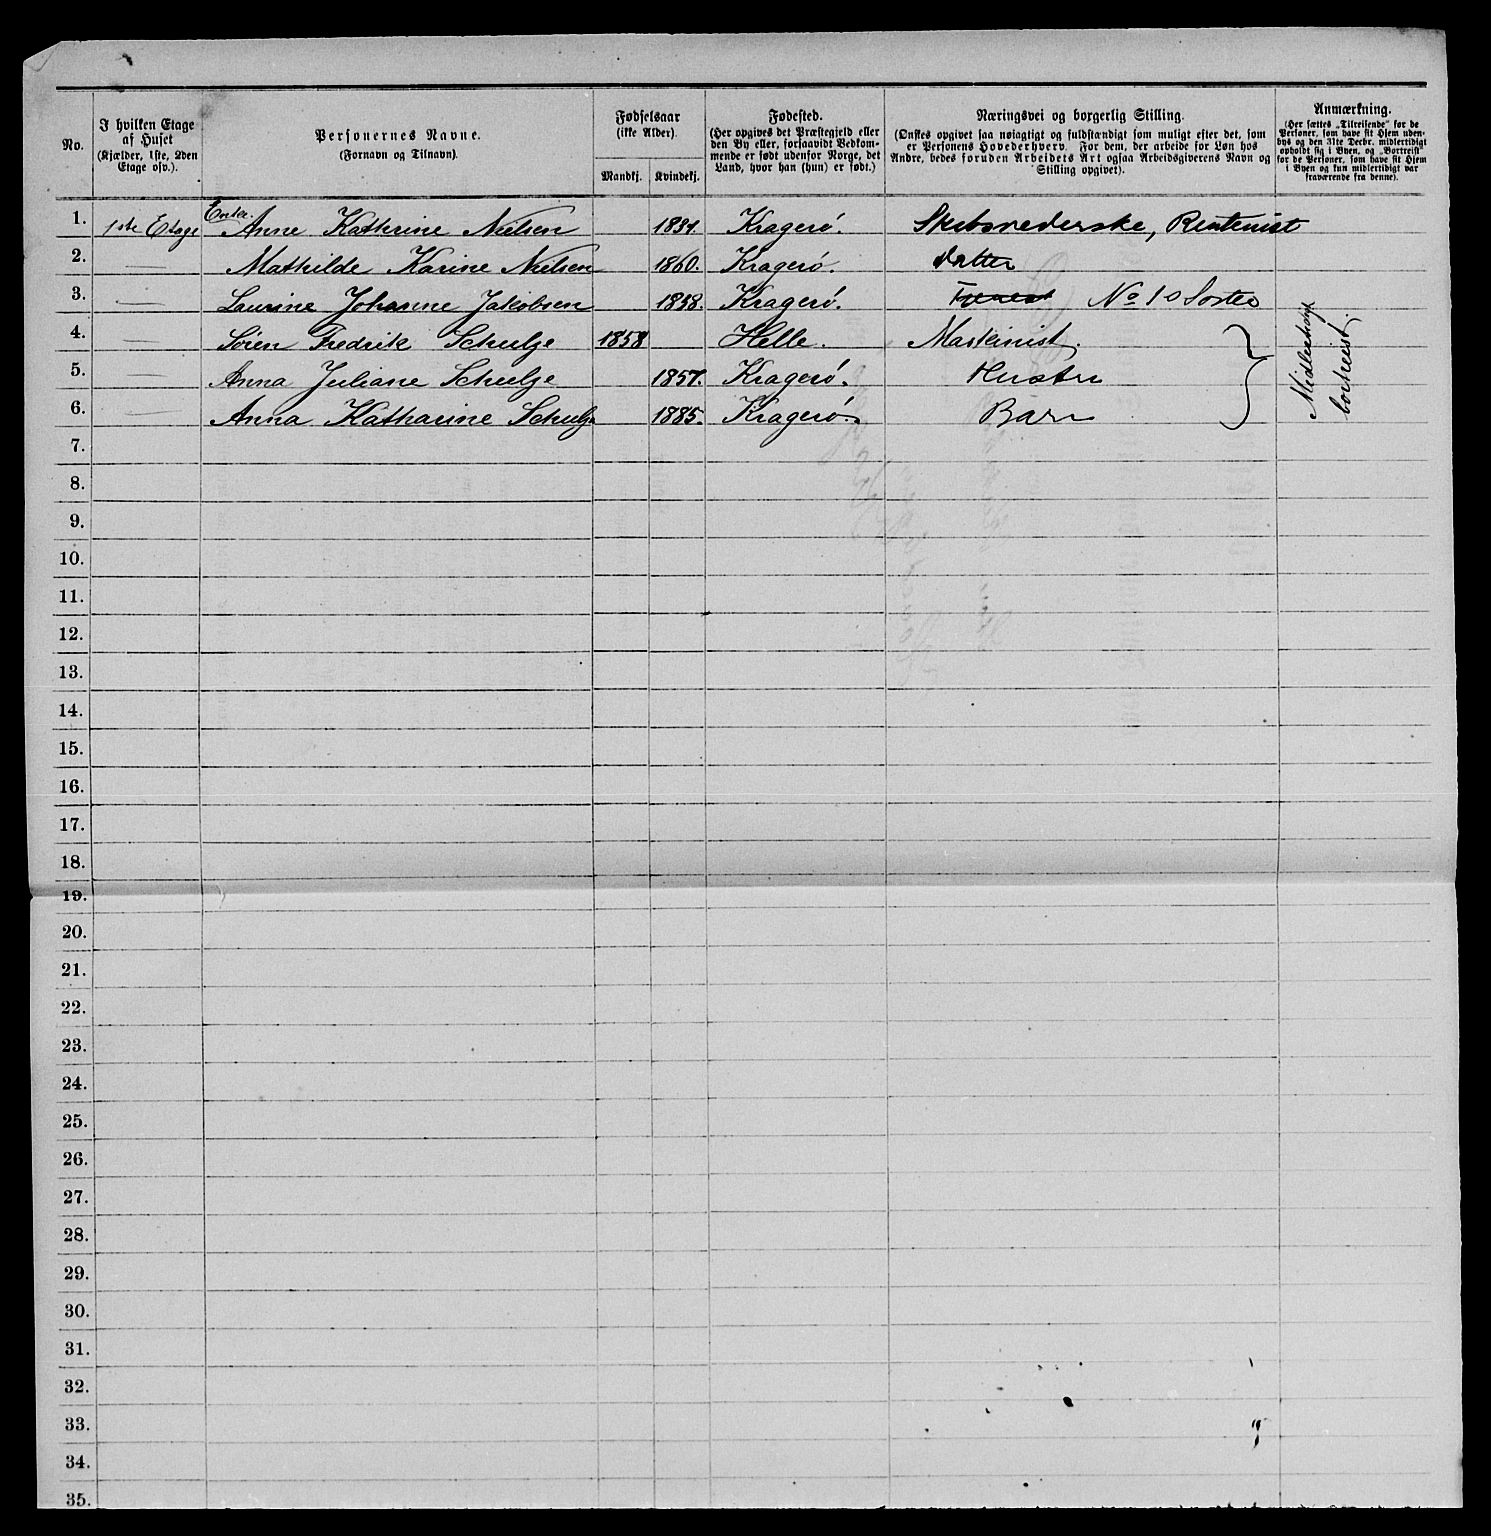 No.
I hvilken Etage af Huset
(Kjælder, 1ste, 2den Etage osv.).
Personernes Navne.
(Fornavn og Tilnavn).
Fødselsaar
(ikke Alder).
Mandkj. Kvindekj.
Fødested.
(Her opgives det Præstegjeld eller
den By eller, forsaavidt Vedkom-
mende er født udenfor Norge, det
Land, hvor han (hun) er født.)
Næringsvei og borgerlig Stilling.
(Ønskes opgivet saa nøiagtigt og fuldstændigt som muligt efter det, som
er Personens Hovederhverv. For dem, der arbeide for Løn hos
Andre, bedes foruden Arbeidets Art ogsaa Arbeidsgiverens Navn og
Stilling opgivet).
Anmærkning.
(Her sættes „Tilreisende" for de
Personer, som have sit Hjem uden-
bys og den 31te Decbr. midlertidigt
opholdt sig i Byen, og „Bortreist"
for de Personer, som have sit Hjem
i Byen og kun midlertidigt var
fraværende fra denne).
1. 1ste Etage Enke. Anne Kathrine Nielsen 1831. Kragerö. Skibsrederske, Rentenist
2. — Mathilde Karine Nielsen 1860. Kragerö. datter
3. — Laurine Johanne Jakobsen 1838. Kragerö. No 1s Söster
4. — Sören Fredrik Schulze 1858 Helle. Maskinist.
5. — Anna Juliane Schulze 1857. Kragerö. Hustru
6. — Anna Katharine Schulze 1885. Kragerö. Barn
Midlertidigt
bortreist.
7.
8.
9.
10.
11.
12.
13.
14.
15.
16.
17.
18.
19.
20.
21.
22.
23.
24.
25.
26.
27.
28.
29.
30.
31.
32.
33.
34.
35.